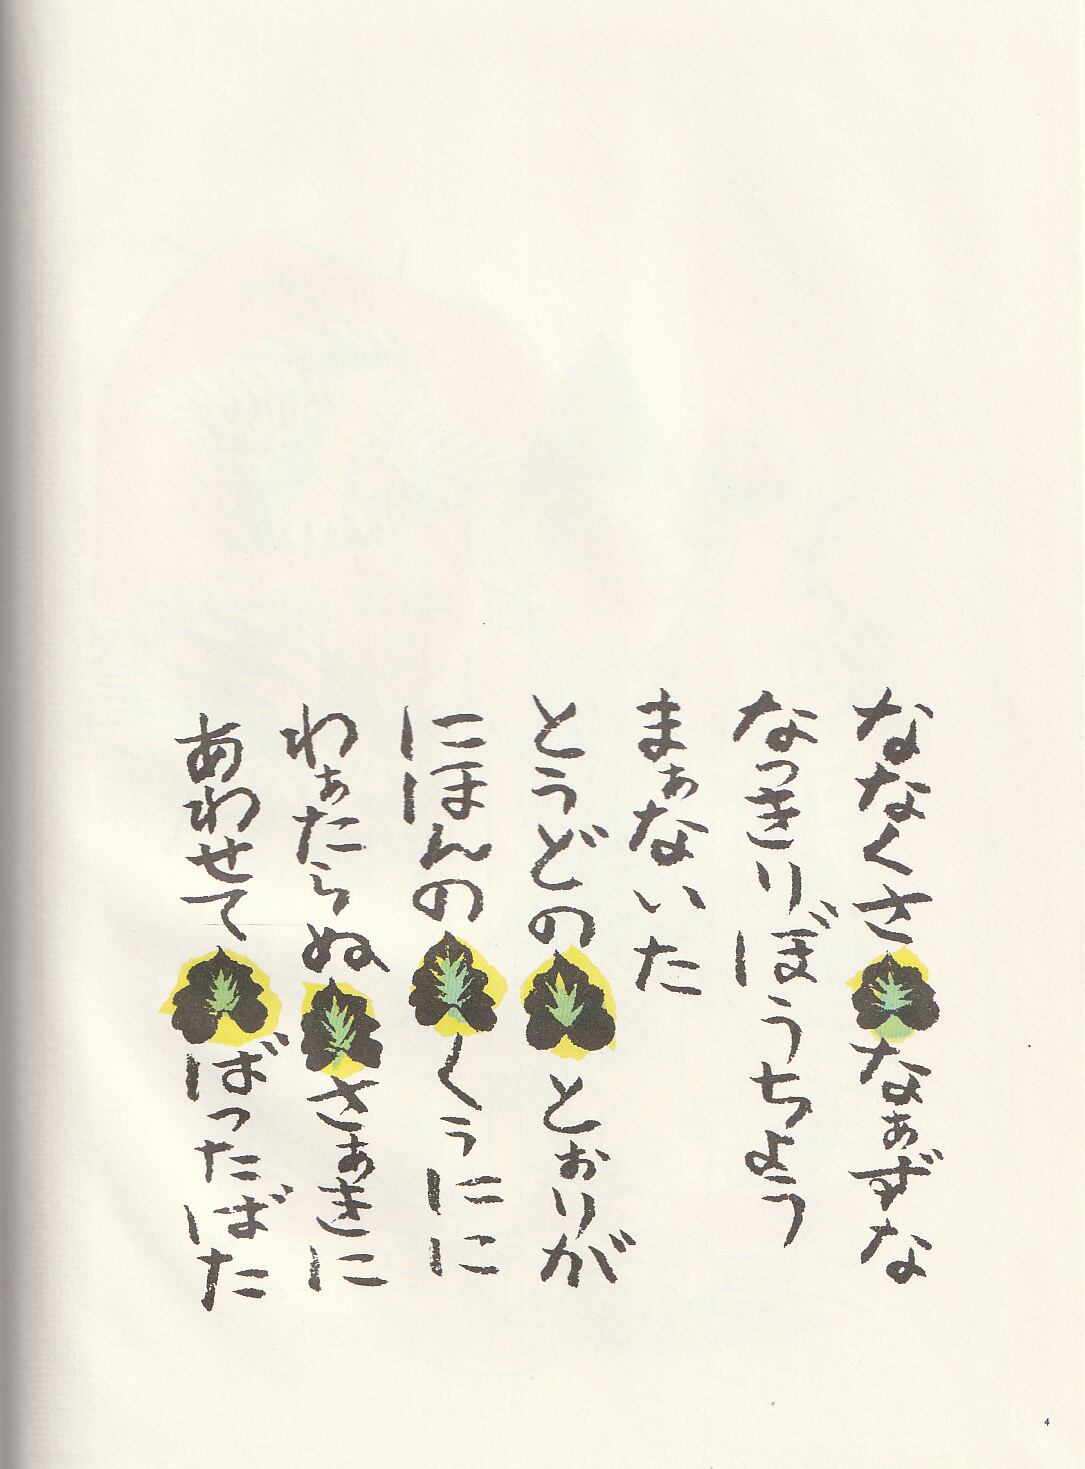 ななくさ なぁずな
なっきりぼうちょう
まぁないた
とうどの とぉりが
にほんの くぅにに
わぁたらぬ さぁきに
あわせて ばったばた
4